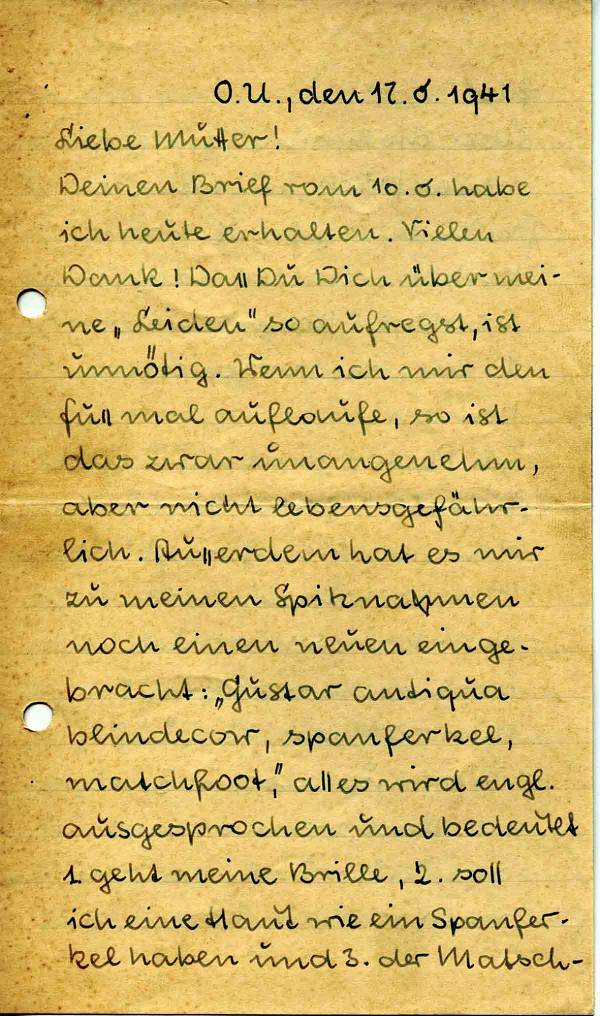 O.U., den 17.6.1941
Liebe Mutter!
Deinen Brief vom 10.6. habe
ich heute erhalten. Vielen
Dank! Daß Du Dich über mei-
ne „Leiden" so aufregst, ist
unnötig. Wenn ich mir den
fuß mal auflaufe, so ist
das zwar unangenehm,
aber nicht lebensgefähr-
lich. Außerdem hat es mir
zu meinen Spitznamen
noch einen neuen einge-
bracht: „Gustav antiqua
blindecow, spanferkel,
matchfoot," alles wird engl.
ausgesprochen und bedeutet
1 geht meine Brille, 2. soll
ich eine Haut wie ein Spanfer-
kel haben und 3. der Matsch-